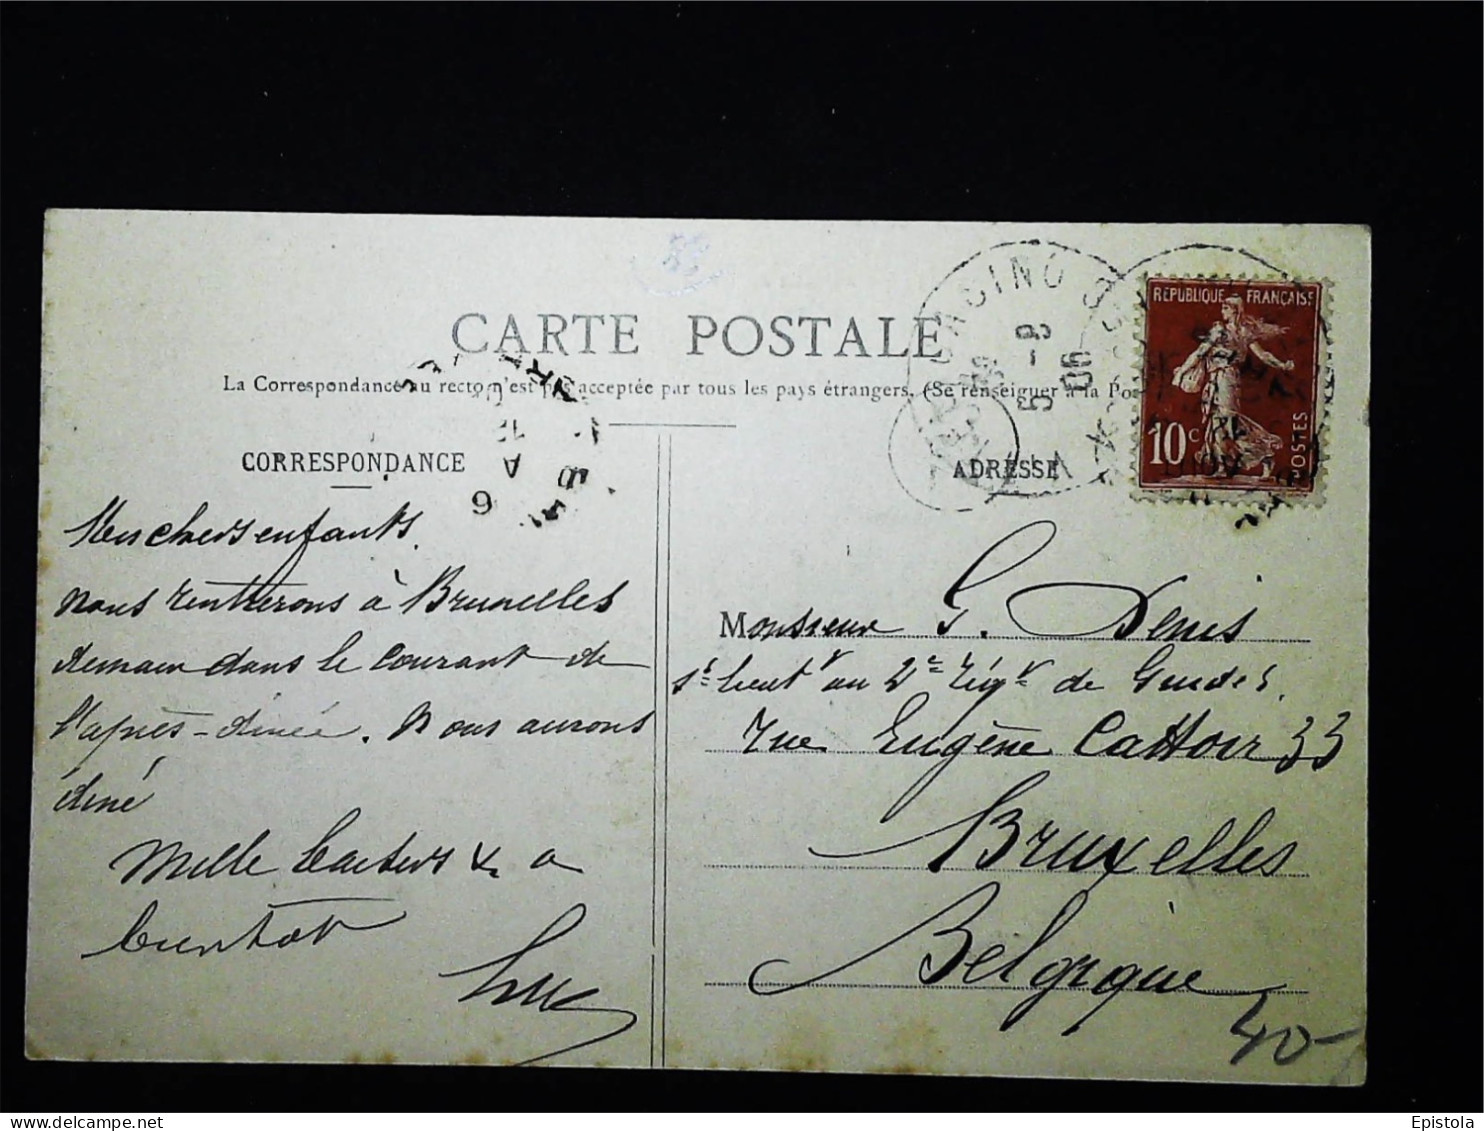 CARTE POSTALE
La Correspondance au recto n'est pas acceptée par tous les pays étrangers. (Se renseigner à la Pos
CORRESPONDANCE
chers enfants.
nous rentrerons à Bruxelles
demain dans le courant de
l'après-dinée. Nous aurons
diné
Mille baisers & a
bientôt
ADRESSE
Monsieur G. Denis
st lieut r au 2e régt de Guides
rue Eugène Cattoir 33
Bruxelles
Belgique
40-
RÉPUBLIQUE FRANÇAISE
10c
POSTES
CASINO
9-8
06
delcampe.net
Epistola